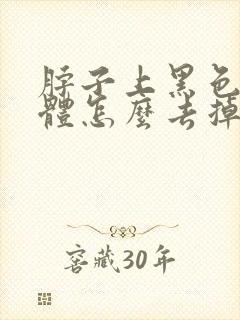 脖子上黑色
體怎麼去掉
窖藏30年